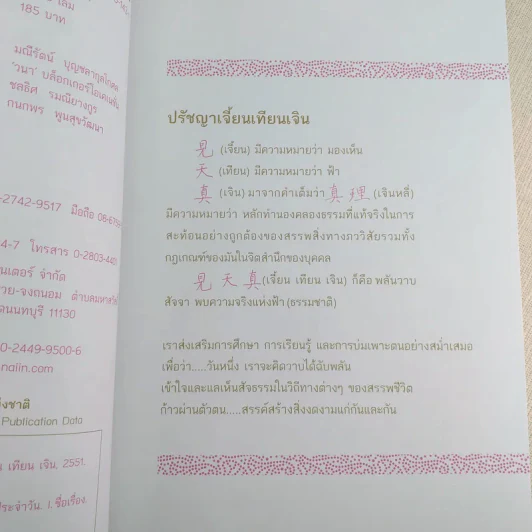 185 บาท
มณีรัตน์ บุญชลากุลโกศล
'วนา' บล็อกเกอร์โอเคเนชั่น
ชลธิศ รมณียางกูร
กนกพร พูนสุขวัฒนา
-2742-9517 มือถือ
4-7 โทรสาร 0-2803-4481
นเตอร์ จำกัด
วย-จงถนอม ตำบลมหาสวัสดิ์
นนทบุรี 11130
0-2449-9500-6
nalin.com
Publication Data
เทียน เจิน, 2551.
ประจำวัน. I.ชื่อเรื่อง.
ปรัชญาเจี้ยนเทียนเจิน
見 (เจี้ยน) มีความหมายว่า มองเห็น
天 (เทียน) มีความหมายว่า ฟ้า
真 (เจิน) มาจากคำเต็มว่า 真理 (เจินหลี่)
มีความหมายว่า หลักทำนองคลองธรรมที่แท้จริงในการ
สะท้อนอย่างถูกต้องของสรรพสิ่งทางภาววิสัยรวมทั้ง
กฎเกณฑ์ของมันในจิตสำนึกของบุคคล
見天真 (เจี้ยน เทียน เจิน) ก็คือ พลันวาบ
สัจจา พบความจริงแห่งฟ้า (ธรรมชาติ)
เราส่งเสริมการศึกษา การเรียนรู้ และการบ่มเพาะตนอย่างสม่ำเสมอ
เพื่อว่า.....วันหนึ่ง เราจะคิดวาบได้ฉับพลัน
เข้าใจและแลเห็นสัจธรรมในวิถีทางต่างๆ ของสรรพชีวิต
ก้าวผ่านตัวตน.....สรรค์สร้างสิ่งงดงามแก่กันและกัน